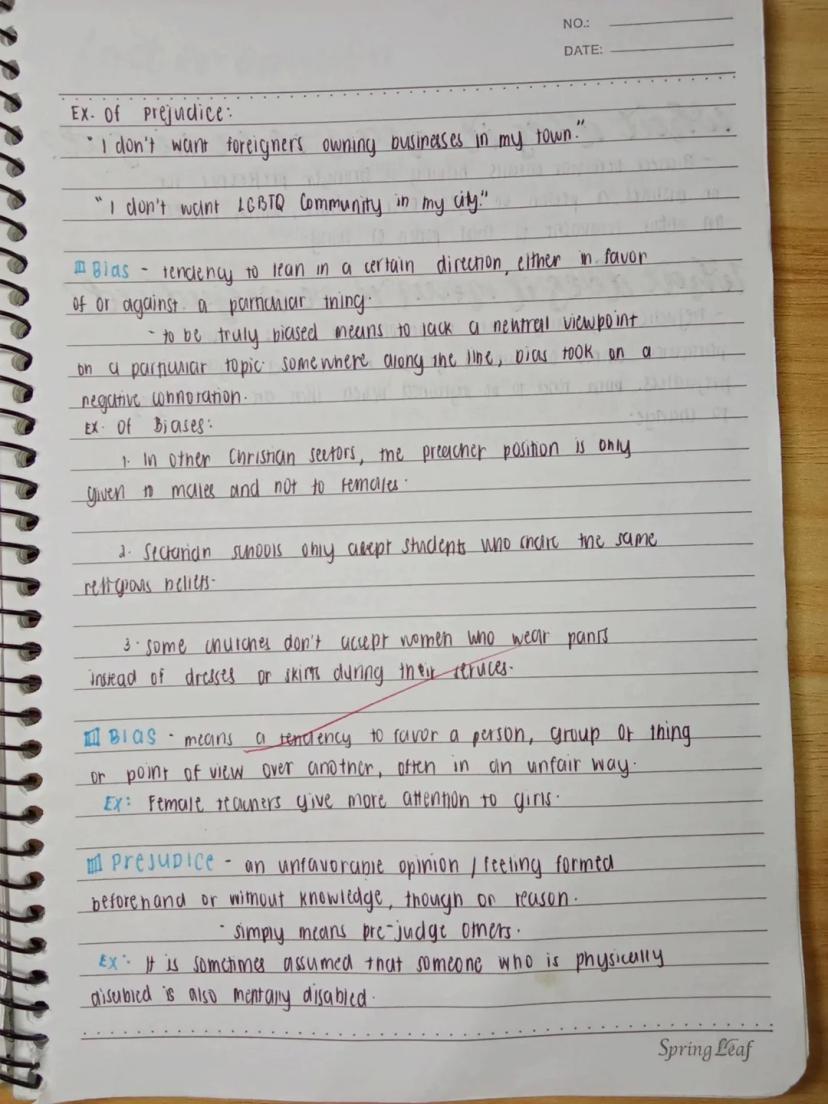 NO.:
DATE:
Ex. Of Prejudice:
"I don't want foreigners owning businesses in my town."
"I don't want LGBTQ Community in my city."
Bias - tendency to lean in a certain direction, either in favor
of or against a particular thing.
- to be truly biased means to lack a neutral viewpoint
on a particular topic. somewhere along the line, bias took on a
negative connotation.
Ex. Of Biases:
1. In other Christian sectors, the preacher position is only
given to males and not to females.
2. Sectarian schools only accept students who share the same
religious beliefs.
3. some churches don't accept women who wear pants
instead of dresses or skirts during their services.
Bias - means a tendency to favor a person, group or thing
or point of view over another, often in an unfair way.
Ex: Female teachers give more attention to girls.
Prejudice - an unfavorable opinion / feeling formed
beforehand or without knowledge, though or reason.
- simply means pre-judge others.
Ex: It is sometimes assumed that someone who is physically
disabled is also mentally disabled.
Spring Leaf